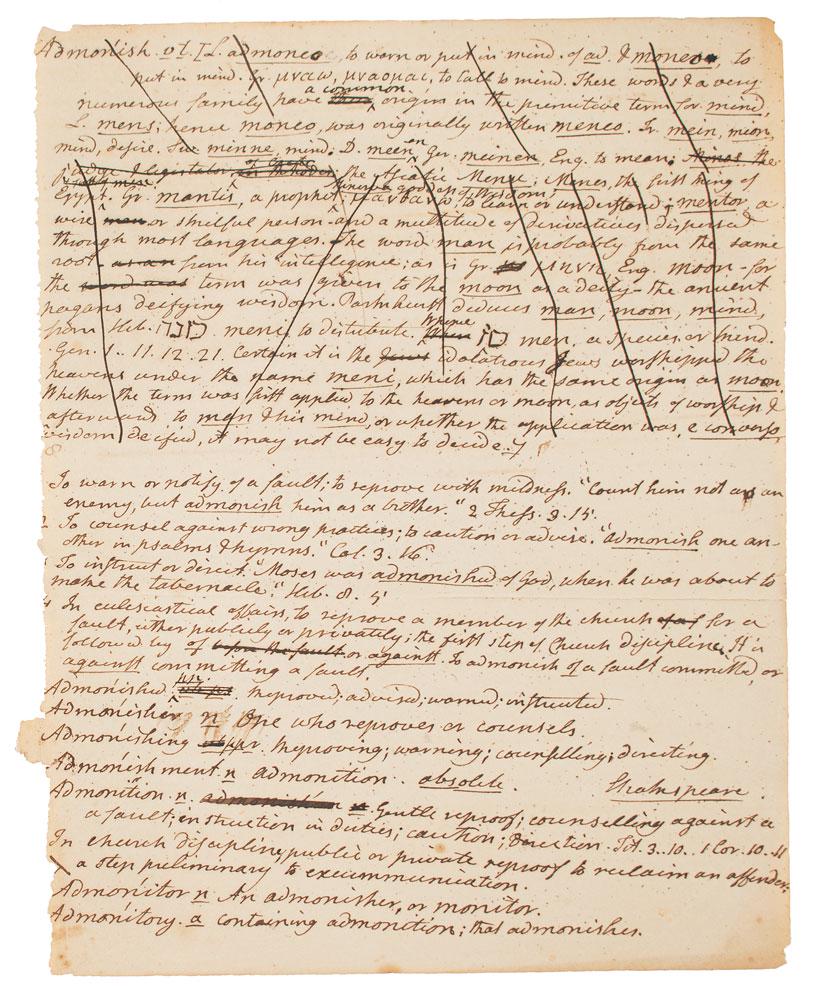 Admon'ish. v t. [L. admoneo, to warn or put in mind. of ad. & moneo, to
put in mind. Gr. μναω, μναομαι, to call to mind. These words & a very
numerous family have a common origin in the primitive term for mind,
L. mens; hence moneo, was originally written meneo. Ir. mein, mion,
mind, desire. Sw. minne, mind. D. meenen Ger. meinen, Eng. to mean; Minos the
Judge & legislator of Crete the Asiatic Menu; Menes, the first king of
Egypt. Gr. mantis, a prophet; Minerva goddess of Wisdom, to learn or understand; mentor, a
wise man or skilful person and a multitude of derivatives dispersed
through most languages. The word man is probably from the same
root from his intelligence; as is Gr. μηνη, Eng. moon - for
the term was given to the moon as a deity - the ancient
pagans deifying wisdom. Parkhurst deduces man, moon, mind,
from Heb. meni, to distribute. Whence מין men, a species or kind.
Gen. 1. 11. 12. 21. Certain it is the Jews idolatrous Jews worshipped the
heavens under the name meni, which has the same origin as moon.
Whether the term was first applied to the heavens or moon, as objects of worship, &
afterward to man & his mind, or whether the application was, e converso,
wisdom deified, it may not be easy to decide.]
To warn or notify of a fault; to reprove with mildness. "Count him not as an
enemy, but admonish him as a brother." 2 Thess. 3. 15.
To counsel against wrong practices; to caution or advise. "Admonish one an-
other in psalms & hymns." Col. 3. 16.
To instruct or direct. "Moses was admonished of God, when he was about to
make the tabernacle." Heb. 8. 5
4 In eclesiastical affairs, to reprove a member of the church for a
fault, either publicly or privately; the first step of Church discipline. It is
followed by of or against. To admonish of a fault committed, or
against committing a fault.
Admon'ished. pp. Reproved; advised; warned; instructed.
Admon'isher n One who reproves or counsels.
Admon'ishing ppr. Reproving; warning; counselling; directing.
Admon'ishment n admonition. obsolete. Shakspeare.
Admoni'tion. n. Gentle reproof; counselling against a
a fault; instruction in duties; caution; direction. Tit. 3. 10. 1 Cor. 10. 11
In church discipline, public or private reproof to reclaim an offender;
a step preliminary to excommunication.
Admon'itor n An admonisher, or monitor.
Admon'itory. a containing admonition; that admonishes.